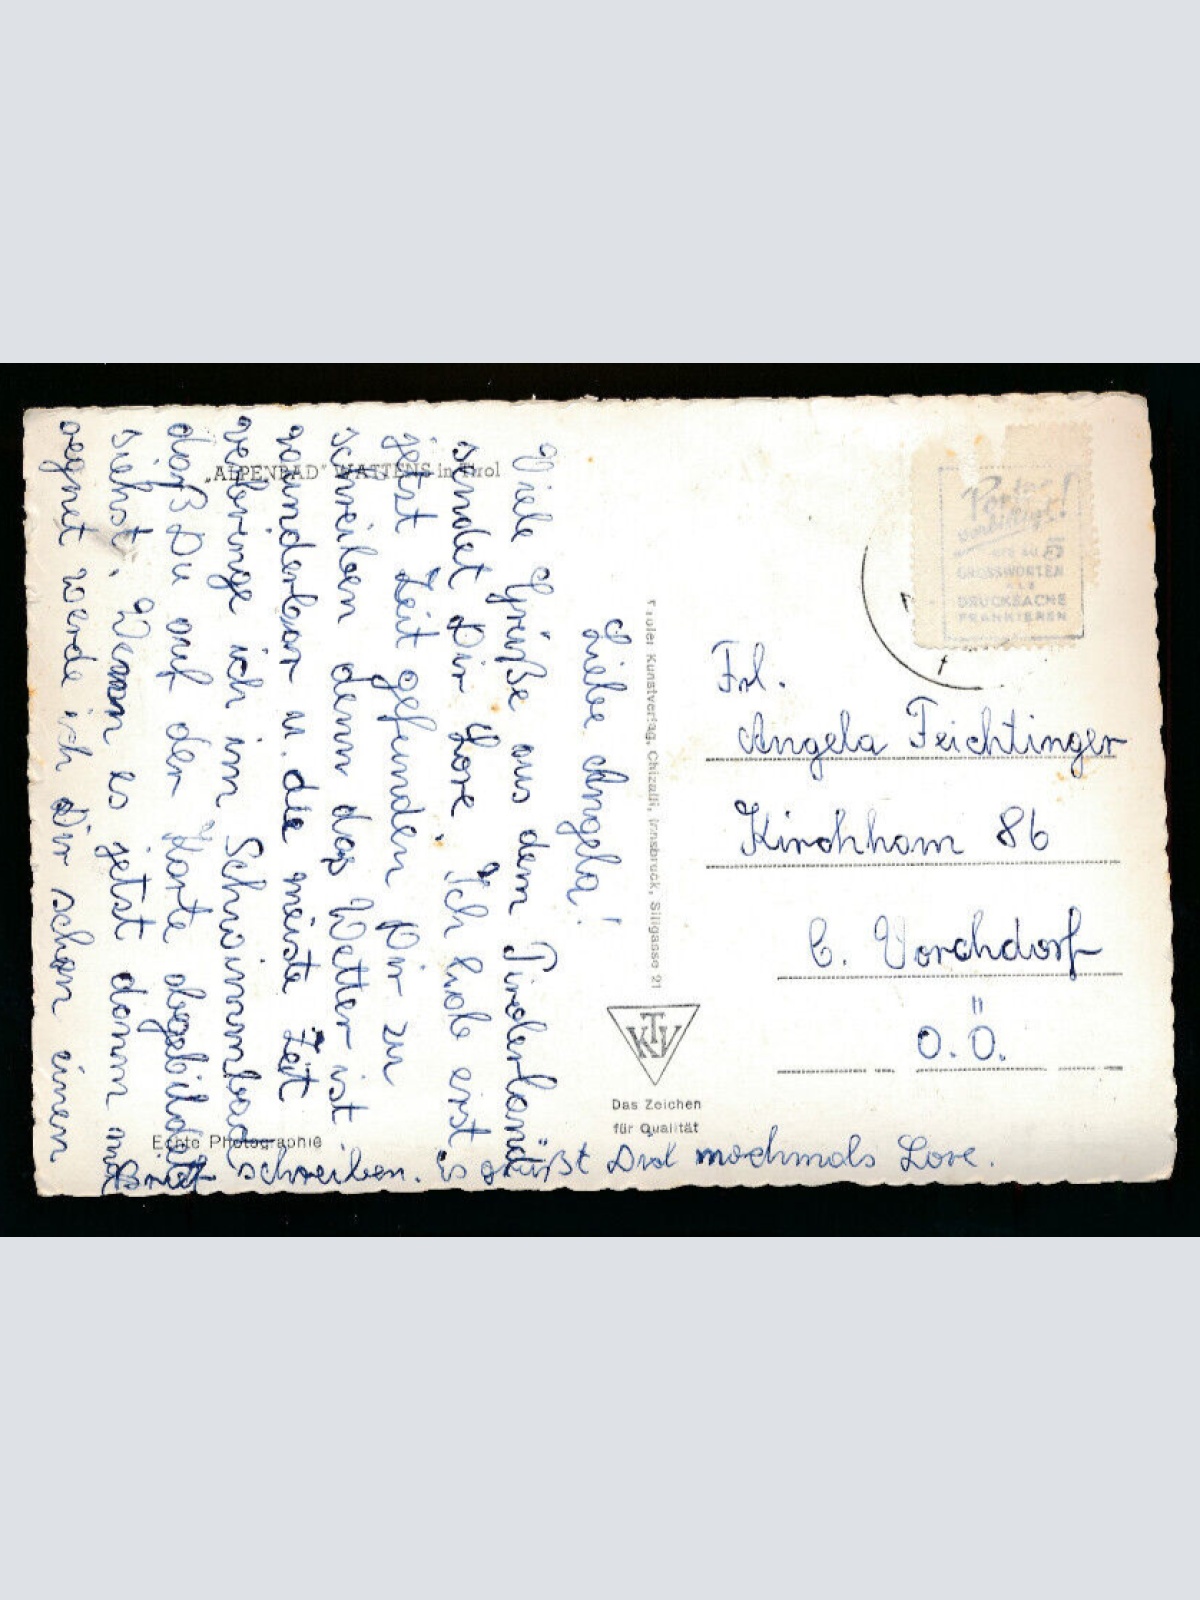 „ALPENBAD" WATTENS in Tirol
Liebe Angela!
Viele Grüße aus dem Tirolerland
sendet Dir Lore. Ich habe erst
jetzt Zeit gefunden Dir zu
schreiben denn das Wetter ist
wunderbar u. die meiste Zeit
verbringe ich im Schwimmbad
daß Du auf der Karte abgebildet
siehst. Wenn es jetzt dann mal
regnet werde ich Dir schon einen
Brief schreiben. Es grüßt Dich nochmals Lore.
Echte Photographie
Tiroler Kunstverlag, Chizalli, Innsbruck, Sillgasse 21
KTV
Das Zeichen
für Qualität
GRUSSWORTEN
ALS
DRUCKSACHE
FRANKIEREN
Frl.
Angela Feichtinger
Kirchham 86
b. Vorchdorf
O.Ö.